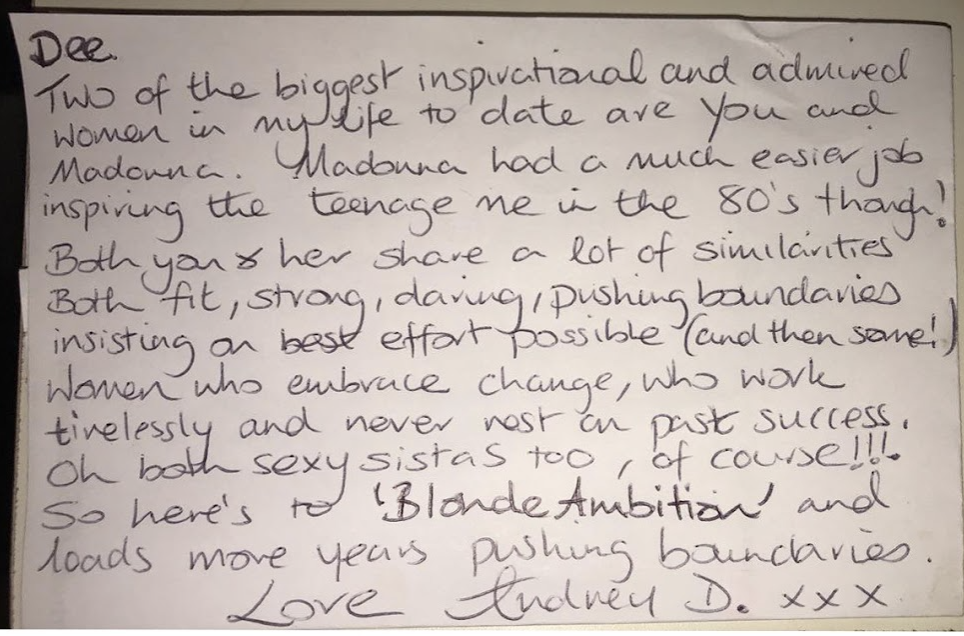 Dee.
Two of the biggest inspirational and admired
women in my life to date are you and
Madonna. Madonna had a much easier job
inspiring the teenage me in the 80's though!
Both you & her share a lot of similarities
Both fit, strong, daring, pushing boundaries
insisting on best effort possible (and then some!)
Women who embrace change, who work
tirelessly and never rest on past success.
Oh both sexy sistas too, of course!!!.
So here's to 'Blonde Ambition' and
loads more years pushing boundaries.
Love Audrey D. xxx